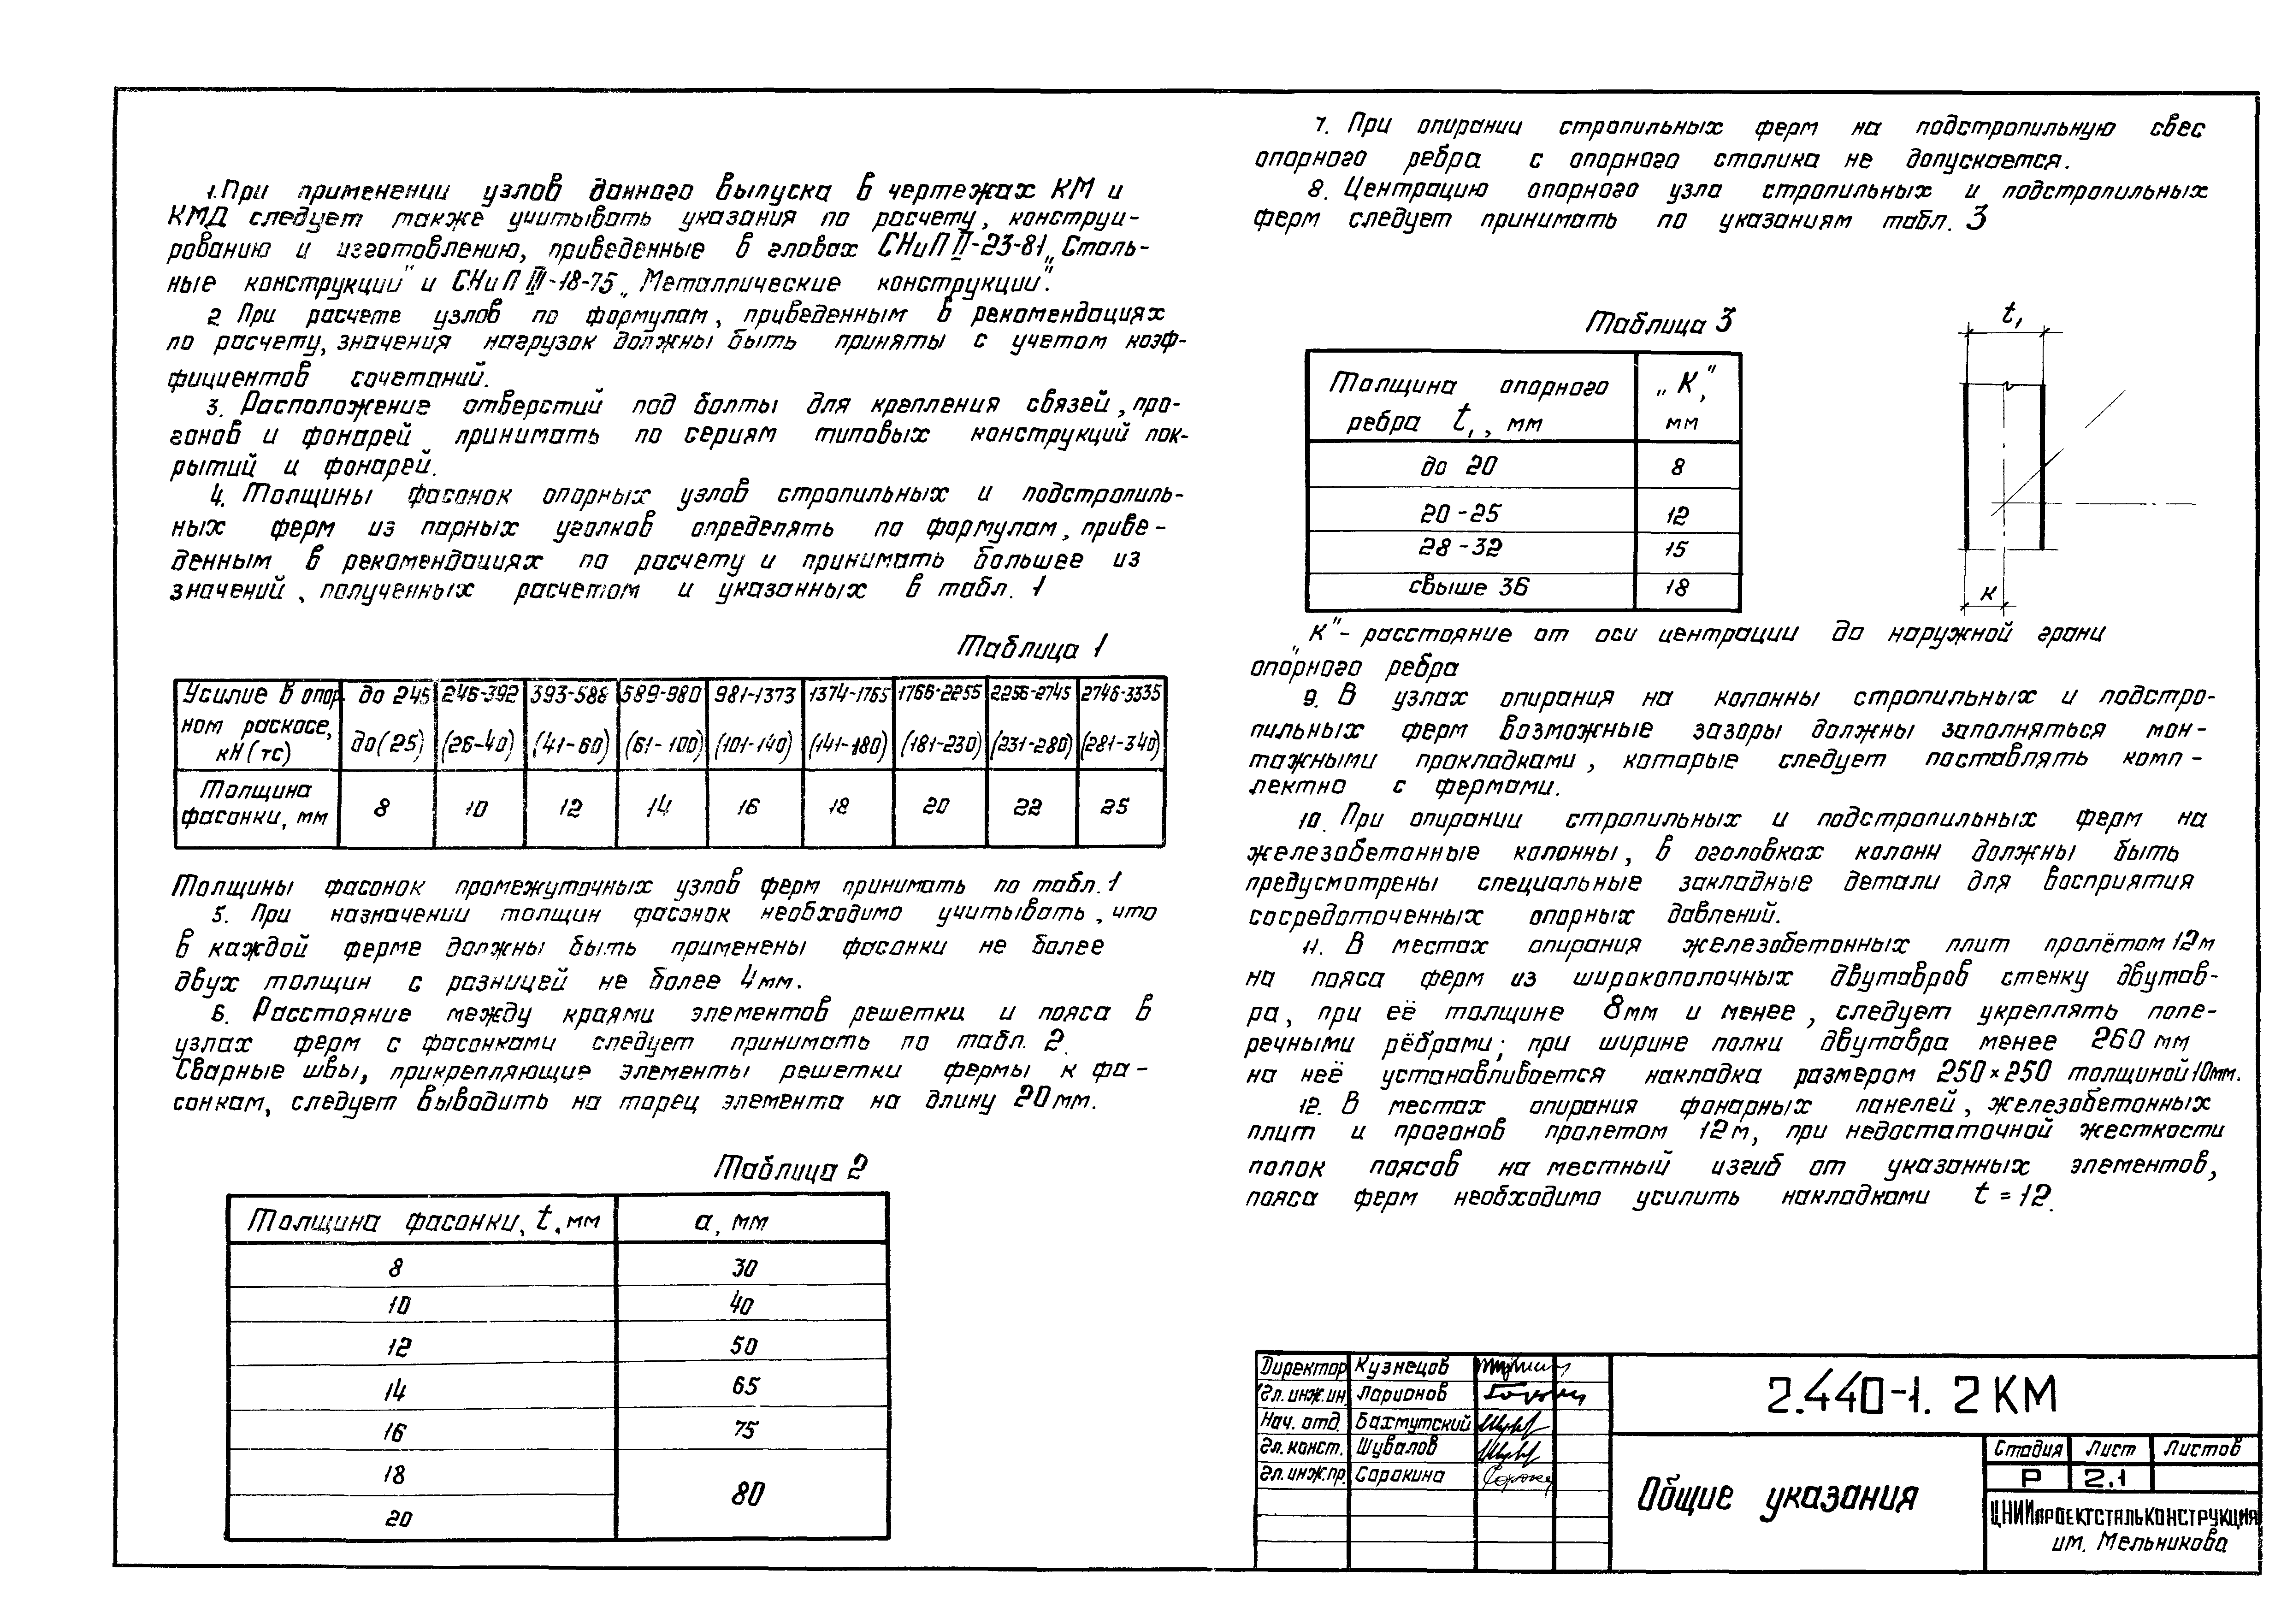 1. При применении узлов данного выпуска в чертежах КМ и
КМД следует также учитывать указания по расчету, конструи-
рованию и изготовлению, приведенные в главах СНиП II-23-81 „Сталь-
ные конструкции" и СНиП III-18-75 „Металлические конструкции".
2. При расчете узлов по формулам, приведенным в рекомендациях
по расчету, значения нагрузок должны быть приняты с учетом коэф-
фициентов сочетаний.
3. Расположение отверстий под болты для крепления связей, про-
гонов и фонарей принимать по сериям типовых конструкций пок-
рытий и фонарей.
4. Толщины фасонок опорных узлов стропильных и подстропиль-
ных ферм из парных уголков определять по формулам, приве-
денным в рекомендациях по расчету и принимать большее из
значений, полученных расчетом и указанных в табл. 1
Таблица 1
Усилие в опор- до 245 246-392 393-588 589-980 981-1373 1374-1765 1766-2255 2256-2745 2746-3335
ном раскосе,
кН (тс) до (25) (26-40) (41-60) (61-100) (101-140) (141-180) (181-230) (231-280) (281-340)
Толщина
фасонки, мм 8 10 12 14 16 18 20 22 25
Толщины фасонок промежуточных узлов ферм принимать по табл. 1
5. При назначении толщин фасонок необходимо учитывать, что
в каждой ферме должны быть применены фасонки не более
двух толщин с разницей не более 4 мм.
6. Расстояние между краями элементов решетки и пояса в
узлах ферм с фасонками следует принимать по табл. 2.
Сварные швы, прикрепляющие элементы решетки фермы к фа-
сонкам, следует выводить на торец элемента на длину 20 мм.
Таблица 2
Толщина фасонки, t, мм а, мм
8 30
10 40
12 50
14 65
16 75
18
80
20
7. При опирании стропильных ферм на подстропильную свес
опорного ребра с опорного столика не допускается.
8. Центрацию опорного узла стропильных и подстропильных
ферм следует принимать по указаниям табл. 3
Таблица 3
Толщина опорного „К",
ребра t₁, мм мм
до 20 8
20-25 12
28-32 15
свыше 36 18
t₁
К
„К" - расстояние от оси центрации до наружной грани
опорного ребра
9. В узлах опирания на колонны стропильных и подстро-
пильных ферм возможные зазоры должны заполняться мон-
тажными прокладками, которые следует поставлять комп-
лектно с фермами.
10. При опирании стропильных и подстропильных ферм на
железобетонные колонны, в оголовках колонн должны быть
предусмотрены специальные закладные детали для восприятия
сосредоточенных опорных давлений.
11. В местах опирания железобетонных плит пролётом 12 м
на пояса ферм из широкополочных двутавров стенку двутав-
ра, при её толщине 8 мм и менее, следует укреплять попе-
речными рёбрами; при ширине полки двутавра менее 260 мм
на неё устанавливается накладка размером 250×250 толщиной 10 мм.
12. В местах опирания фонарных панелей, железобетонных
плит и прогонов пролетом 12 м, при недостаточной жесткости
полок поясов на местный изгиб от указанных элементов,
пояса ферм необходимо усилить накладками t = 12.
Директор Кузнецов
Гл. инж. ин. Ларионов
Нач. отд. Бахмутский
Гл. конст. Шувалов
Гл. инж. пр. Сорокина
2.440-1. 2 КМ
Общие указания
Стадия Лист Листов
Р 2.1
ЦНИИПРОЕКТСТАЛЬКОНСТРУКЦИЯ
им. Мельникова